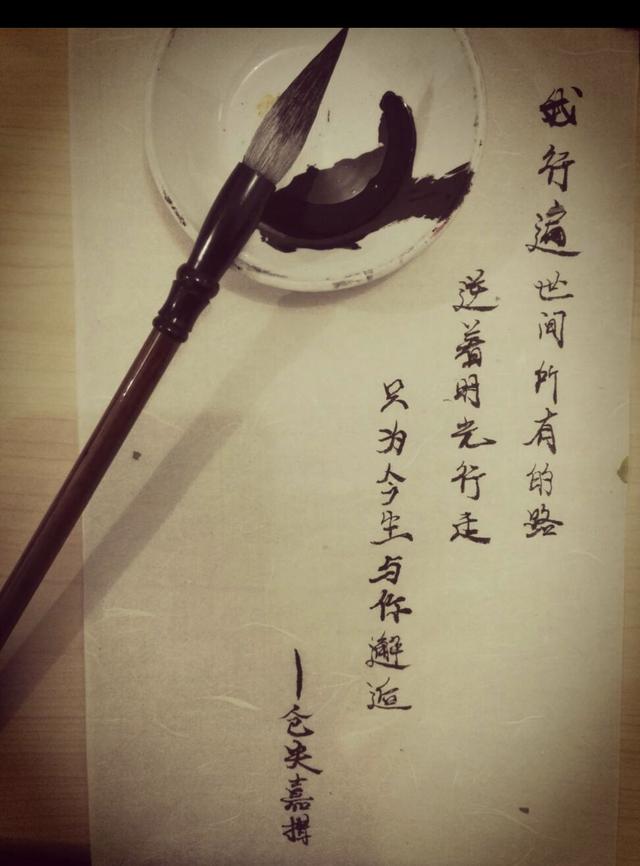 我行遍世间所有的路
逆着明光行走
只为今生与你邂逅
—仓央嘉措